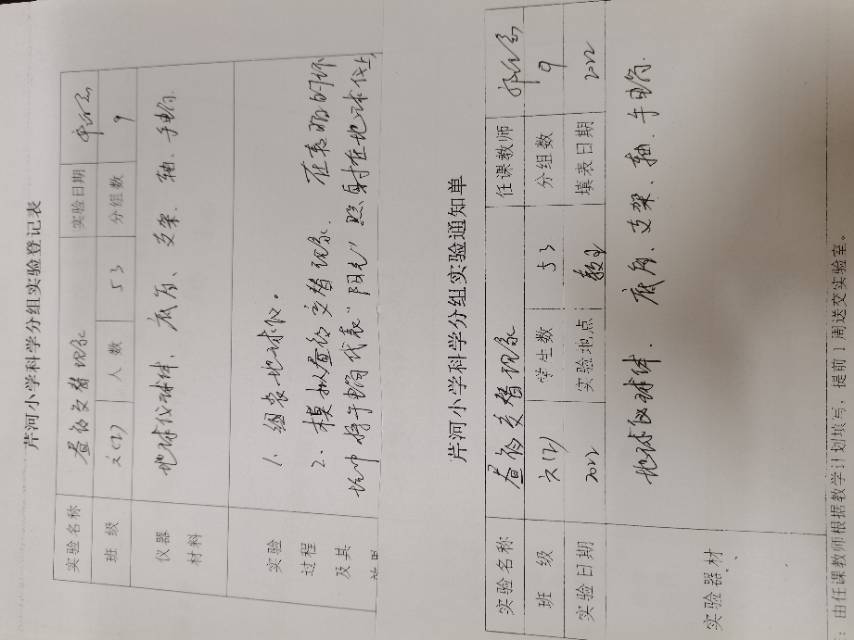 芹河小学科学分组实验登记表
实验名称 昼夜交替现象 实验日期
班 级 六(2) 人 数 53 分组数 9
仪器 材料 地球仪球体、底座、支架、轴、手电筒.
实验 过程 及其
1. 组装地球仪。
2. 模拟昼夜交替现象. 在表明的环
境中将手电筒代表"阳光"照射在地球仪上
芹河小学科学分组实验通知单
实验名称 昼夜交替现象 任课教师
班 级 六(2) 学生数 53 分组数 9
实验日期 2022 实验地点 教室 填表日期 2022
实验器材 地球仪球体. 底座、支架、轴、手电筒.
: 由任课教师根据教学计划填写，提前1周送交实验室。